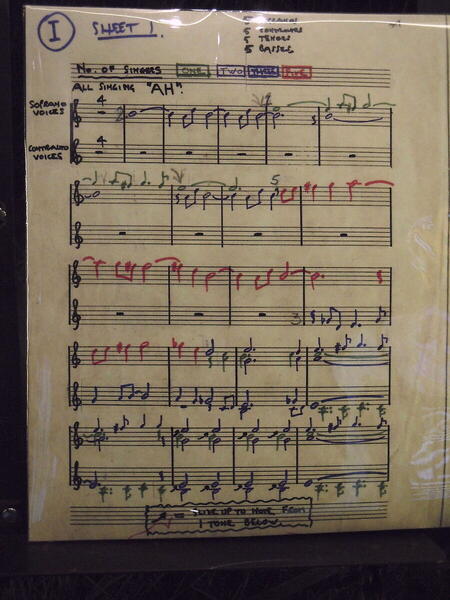 I SHEET 1.
5 CONTRALTOS
5 TENORS
5 BASSES
NO. OF SINGERS ONE TWO THREE FIVE
ALL SINGING "AH".
SOPRANO VOICES
4
CONTRALTO VOICES
4
2
4
5
3
= SLIDE UP TO NOTE FROM
1 TONE BELOW.